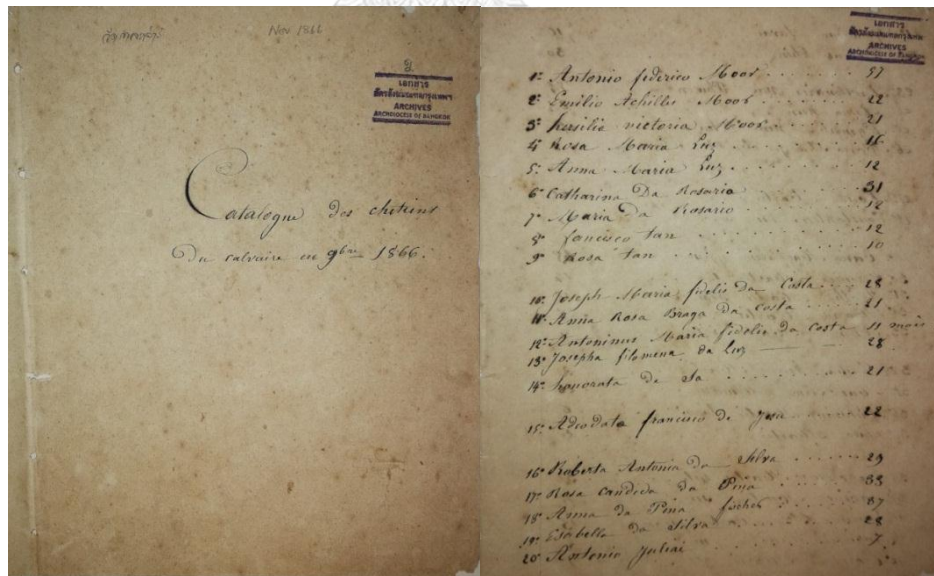 Nov 1866
เอกสาร
อัครสังฆมณฑลกรุงเทพฯ
ARCHIVES
ARCHDIOCESE OF BANGKOK
Catalogue des chretiens
Du calvaire en 9bre 1866.
เอกสาร
อัครสังฆมณฑลกรุงเทพฯ
ARCHIVES
ARCHDIOCESE OF BANGKOK
1º Antonio federico Moor 57
2º Emilio Achilles Moor 22
3º hersilia victoria Moor 21
4º Rosa Maria Luz 16
5º Anna Maria Luz 12
6º Catharina Da Rosario 51
7º Maria Da Rosario 12
8º fancisco tan 12
9º Rosa tan 10
10º Joseph Maria fidelis Da Costa 28
11º Anna Rosa Braga da costa 21
12º Antoninus Maria fidelis da costa 11 mois
13º Josepha filomena da Luz 28
14º honorata de Sa 21
15º Adeodata francisco de 22
16º Roberta Antonia Da Silva 29
17º Rosa candida da Pina 33
18º Anna Da Pina 37
19º Isabella da Silva 28
20º Antonio Juliai 7